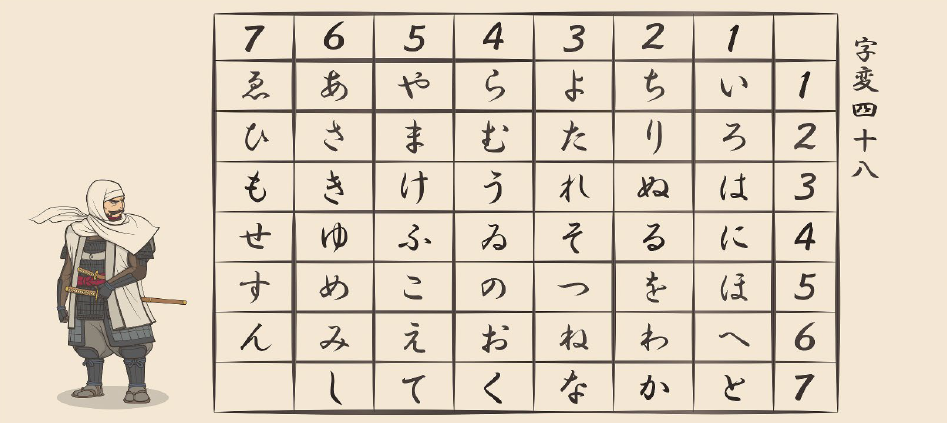 字変四十八
7 6 5 4 3 2 1
ゑ あ や ら よ ち い 1
ひ さ ま む た り ろ 2
も き け う れ ぬ は 3
せ ゆ ふ ゐ そ る に 4
す め こ の つ を ほ 5
ん み え お ね わ へ 6
し て く な か と 7